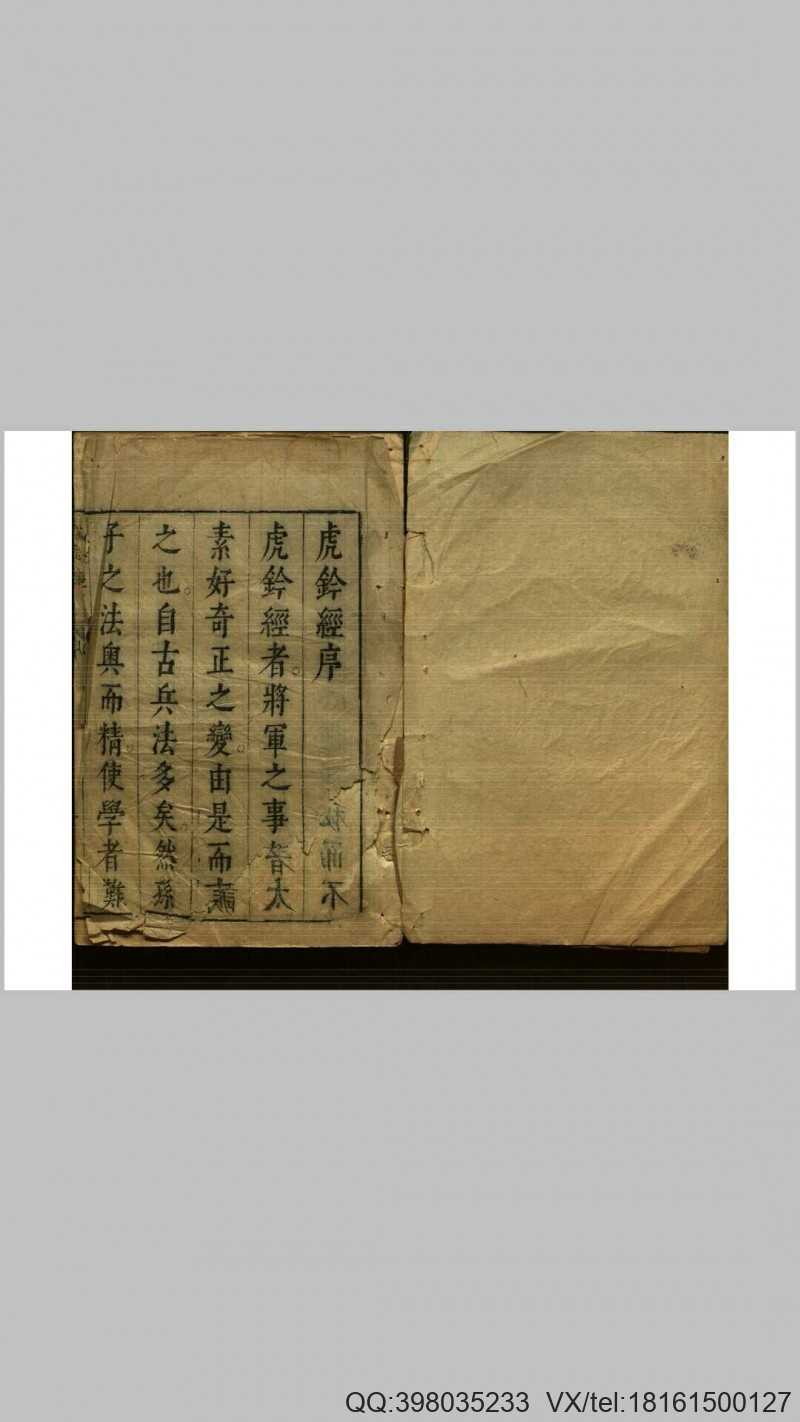 虎鈐經序
虎鈐經者。將軍之事昔太
素好奇正之變。由是而譔
之也。自古兵法多矣。然孫
子之法奧而精。使學者難
QQ:398035233 VX/tel:18161500127